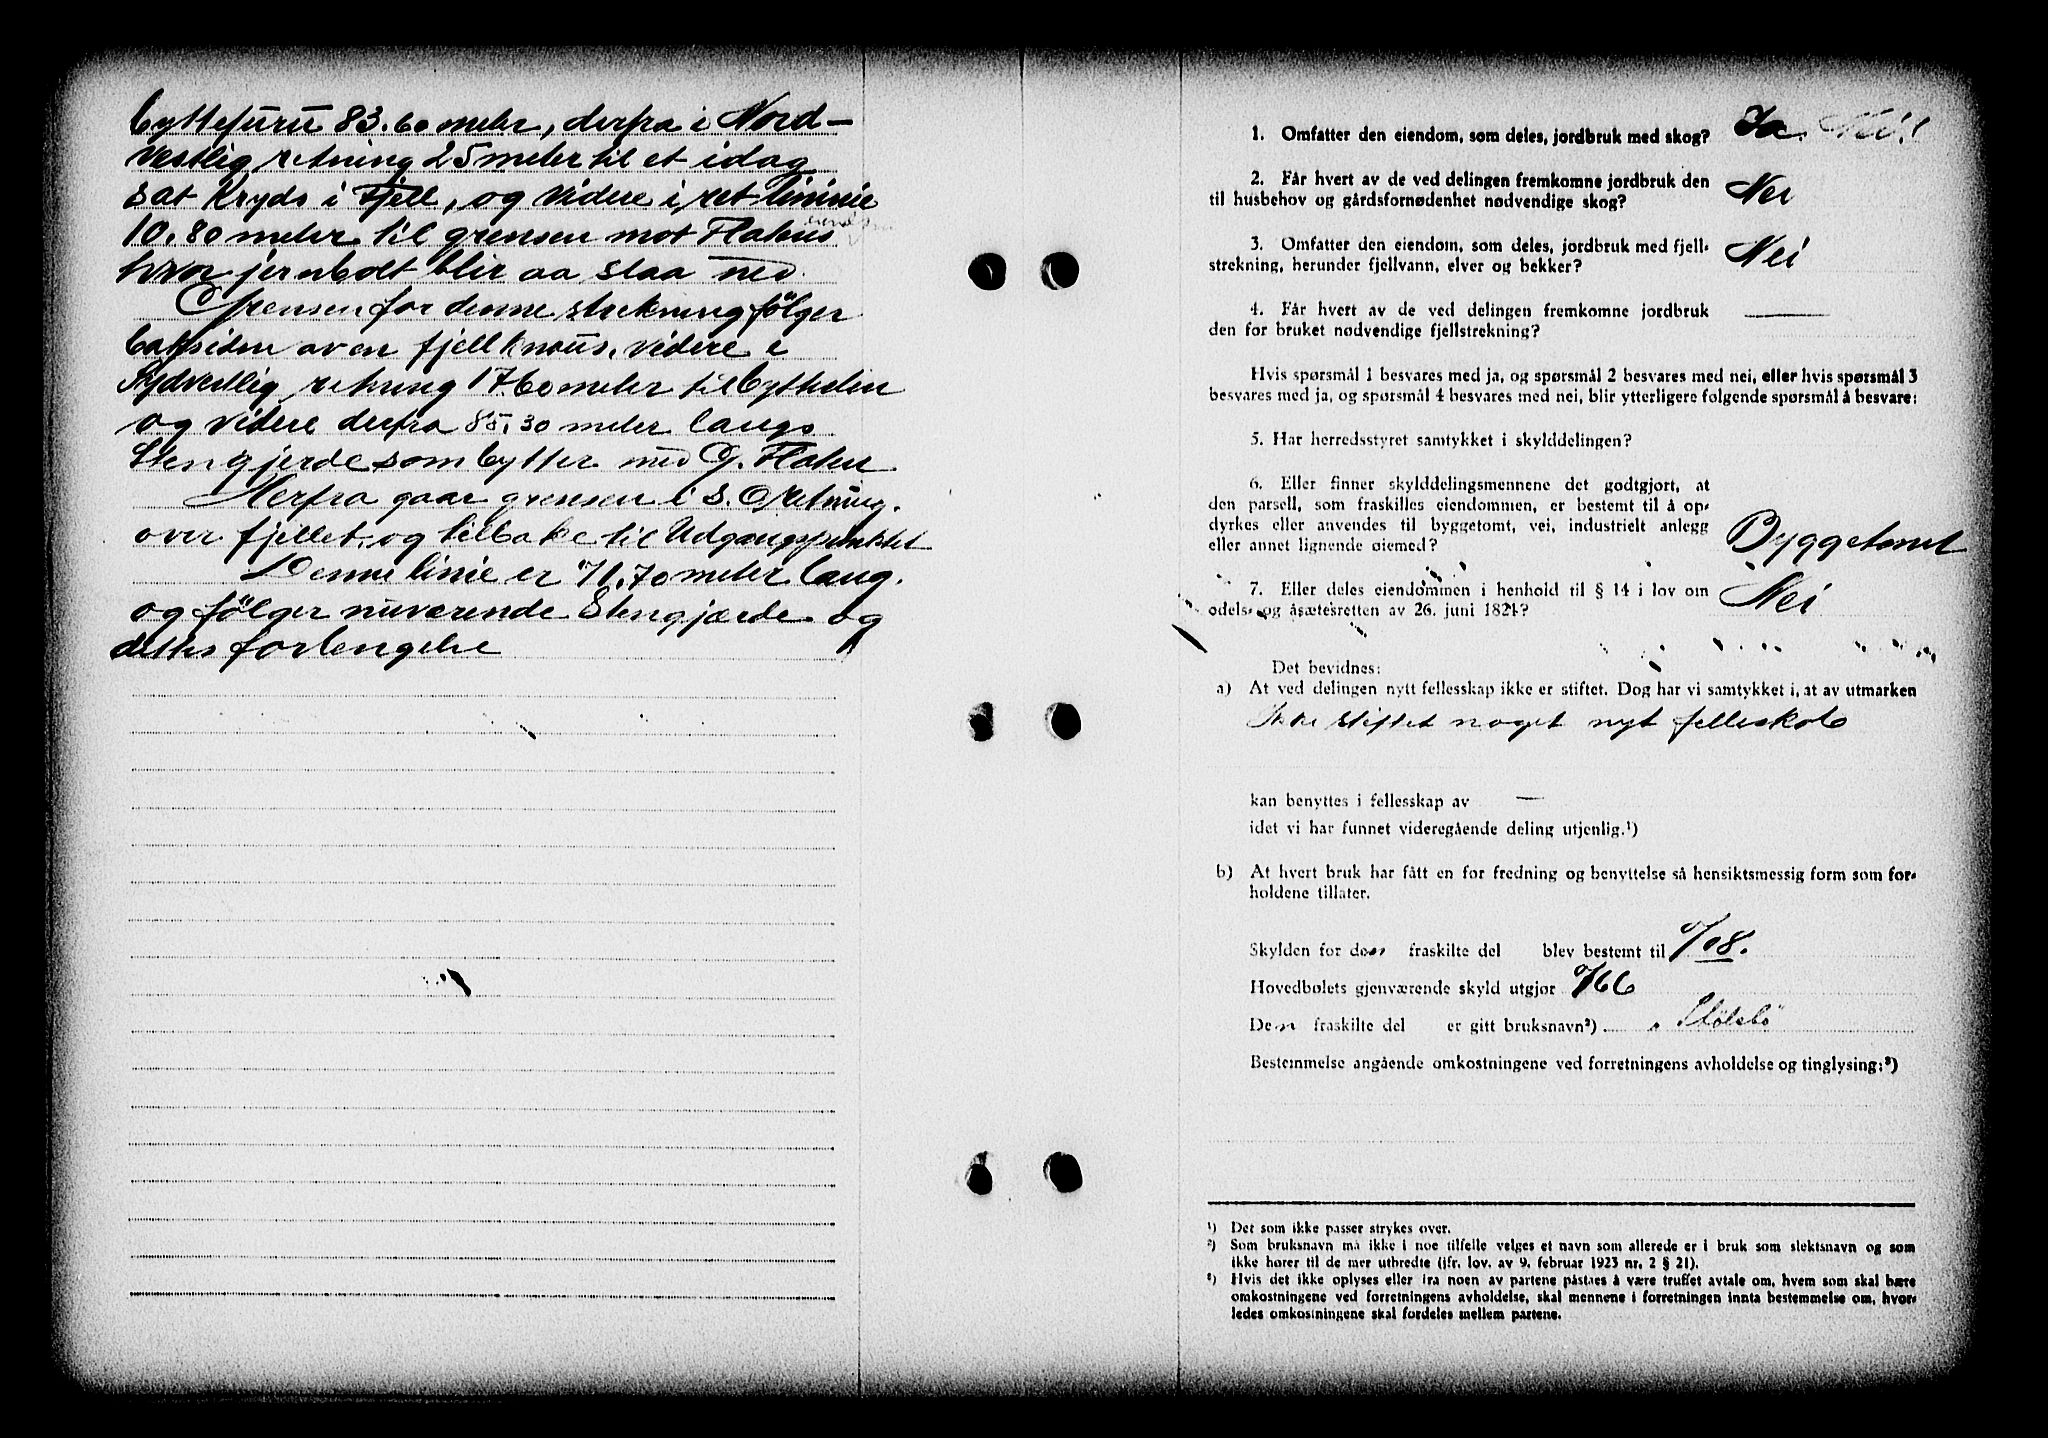 byttefuru 83.60 meter, derfra i Nord-
vestlig retning 25 meter til et idag
sat Kryds i Fjell, og videre i ret linnie
10.80 meter til grensen mot Flatens
hvor jernbolt blir aa slaa ned.
Grensen for denne strekning følger
baksiden av en fjellknaus, videre i
Sydvestlig retning 17.60 meter til byttelin
og videre derfra 85.30 meter langs
Stengjerde som bytter med G. Flaten
Herfra gaar grensen i S.O retning.
over fjellet, og tilbake til Udgangspunktet
Denne linie er 71.70 meter lang.
og følger nuverende Stengjærde og
dettes forlengelse
1. Omfatter den eiendom, som deles, jordbruk med skog? Ja. Nei!
2. Får hvert av de ved delingen fremkomne jordbruk den
til husbehov og gårdsfornødenhet nødvendige skog? Nei
3. Omfatter den eiendom, som deles, jordbruk med fjell-
strekning, herunder fjellvann, elver og bekker? Nei
4. Får hvert av de ved delingen fremkomne jordbruk
den for bruket nødvendige fjellstrekning? —
Hvis spørsmål 1 besvares med ja, og spørsmål 2 besvares med nei, eller hvis spørsmål 3
besvares med ja, og spørsmål 4 besvares med nei, blir ytterligere følgende spørsmål å besvare:
5. Har herredsstyret samtykket i skylddelingen?
6. Eller finner skylddelingsmennene det godtgjort, at
den parsell, som fraskilles eiendommen, er bestemt til å op-
dyrkes eller anvendes til byggetomt, vei, industrielt anlegg
eller annet lignende øiemed? Byggetomt
7. Eller deles eiendommen i henhold til § 14 i lov om
odels- og åsætesretten av 26. juni 1821? Nei
Det bevidnes:
a) At ved delingen nytt fellesskap ikke er stiftet. Dog har vi samtykket i, at av utmarken
Ikke stiftet noget nyt felleskab
kan benyttes i fellesskap av —
idet vi har funnet videregående deling utjenlig.¹)
b) At hvert bruk har fått en for fredning og benyttelse så hensiktsmessig form som for-
holdene tillater.
Skylden for den fraskilte del blev bestemt til 0/08.
Hovedbølets gjenværende skyld utgjør 0/66
Den fraskilte del er gitt bruksnavn²) Stølsbø
Bestemmelse angående omkostningene ved forretningens avholdelse og tinglysing:³)
¹) Det som ikke passer strykes over.
²) Som bruksnavn må ikke i noe tilfelle velges et navn som allerede er i bruk som slektsnavn og som
ikke hører til de mer utbredte (jfr. lov. av 9. februar 1923 nr. 2 § 21).
³) Hvis det ikke oplyses eller fra noen av partene påstaes å være truffet avtale om, hvem som skal bære
omkostningene ved forretningens avholdelse, skal mennene i forretningen innta bestemmelse om, hvor-
ledes omkostningene skal fordeles mellem partene.